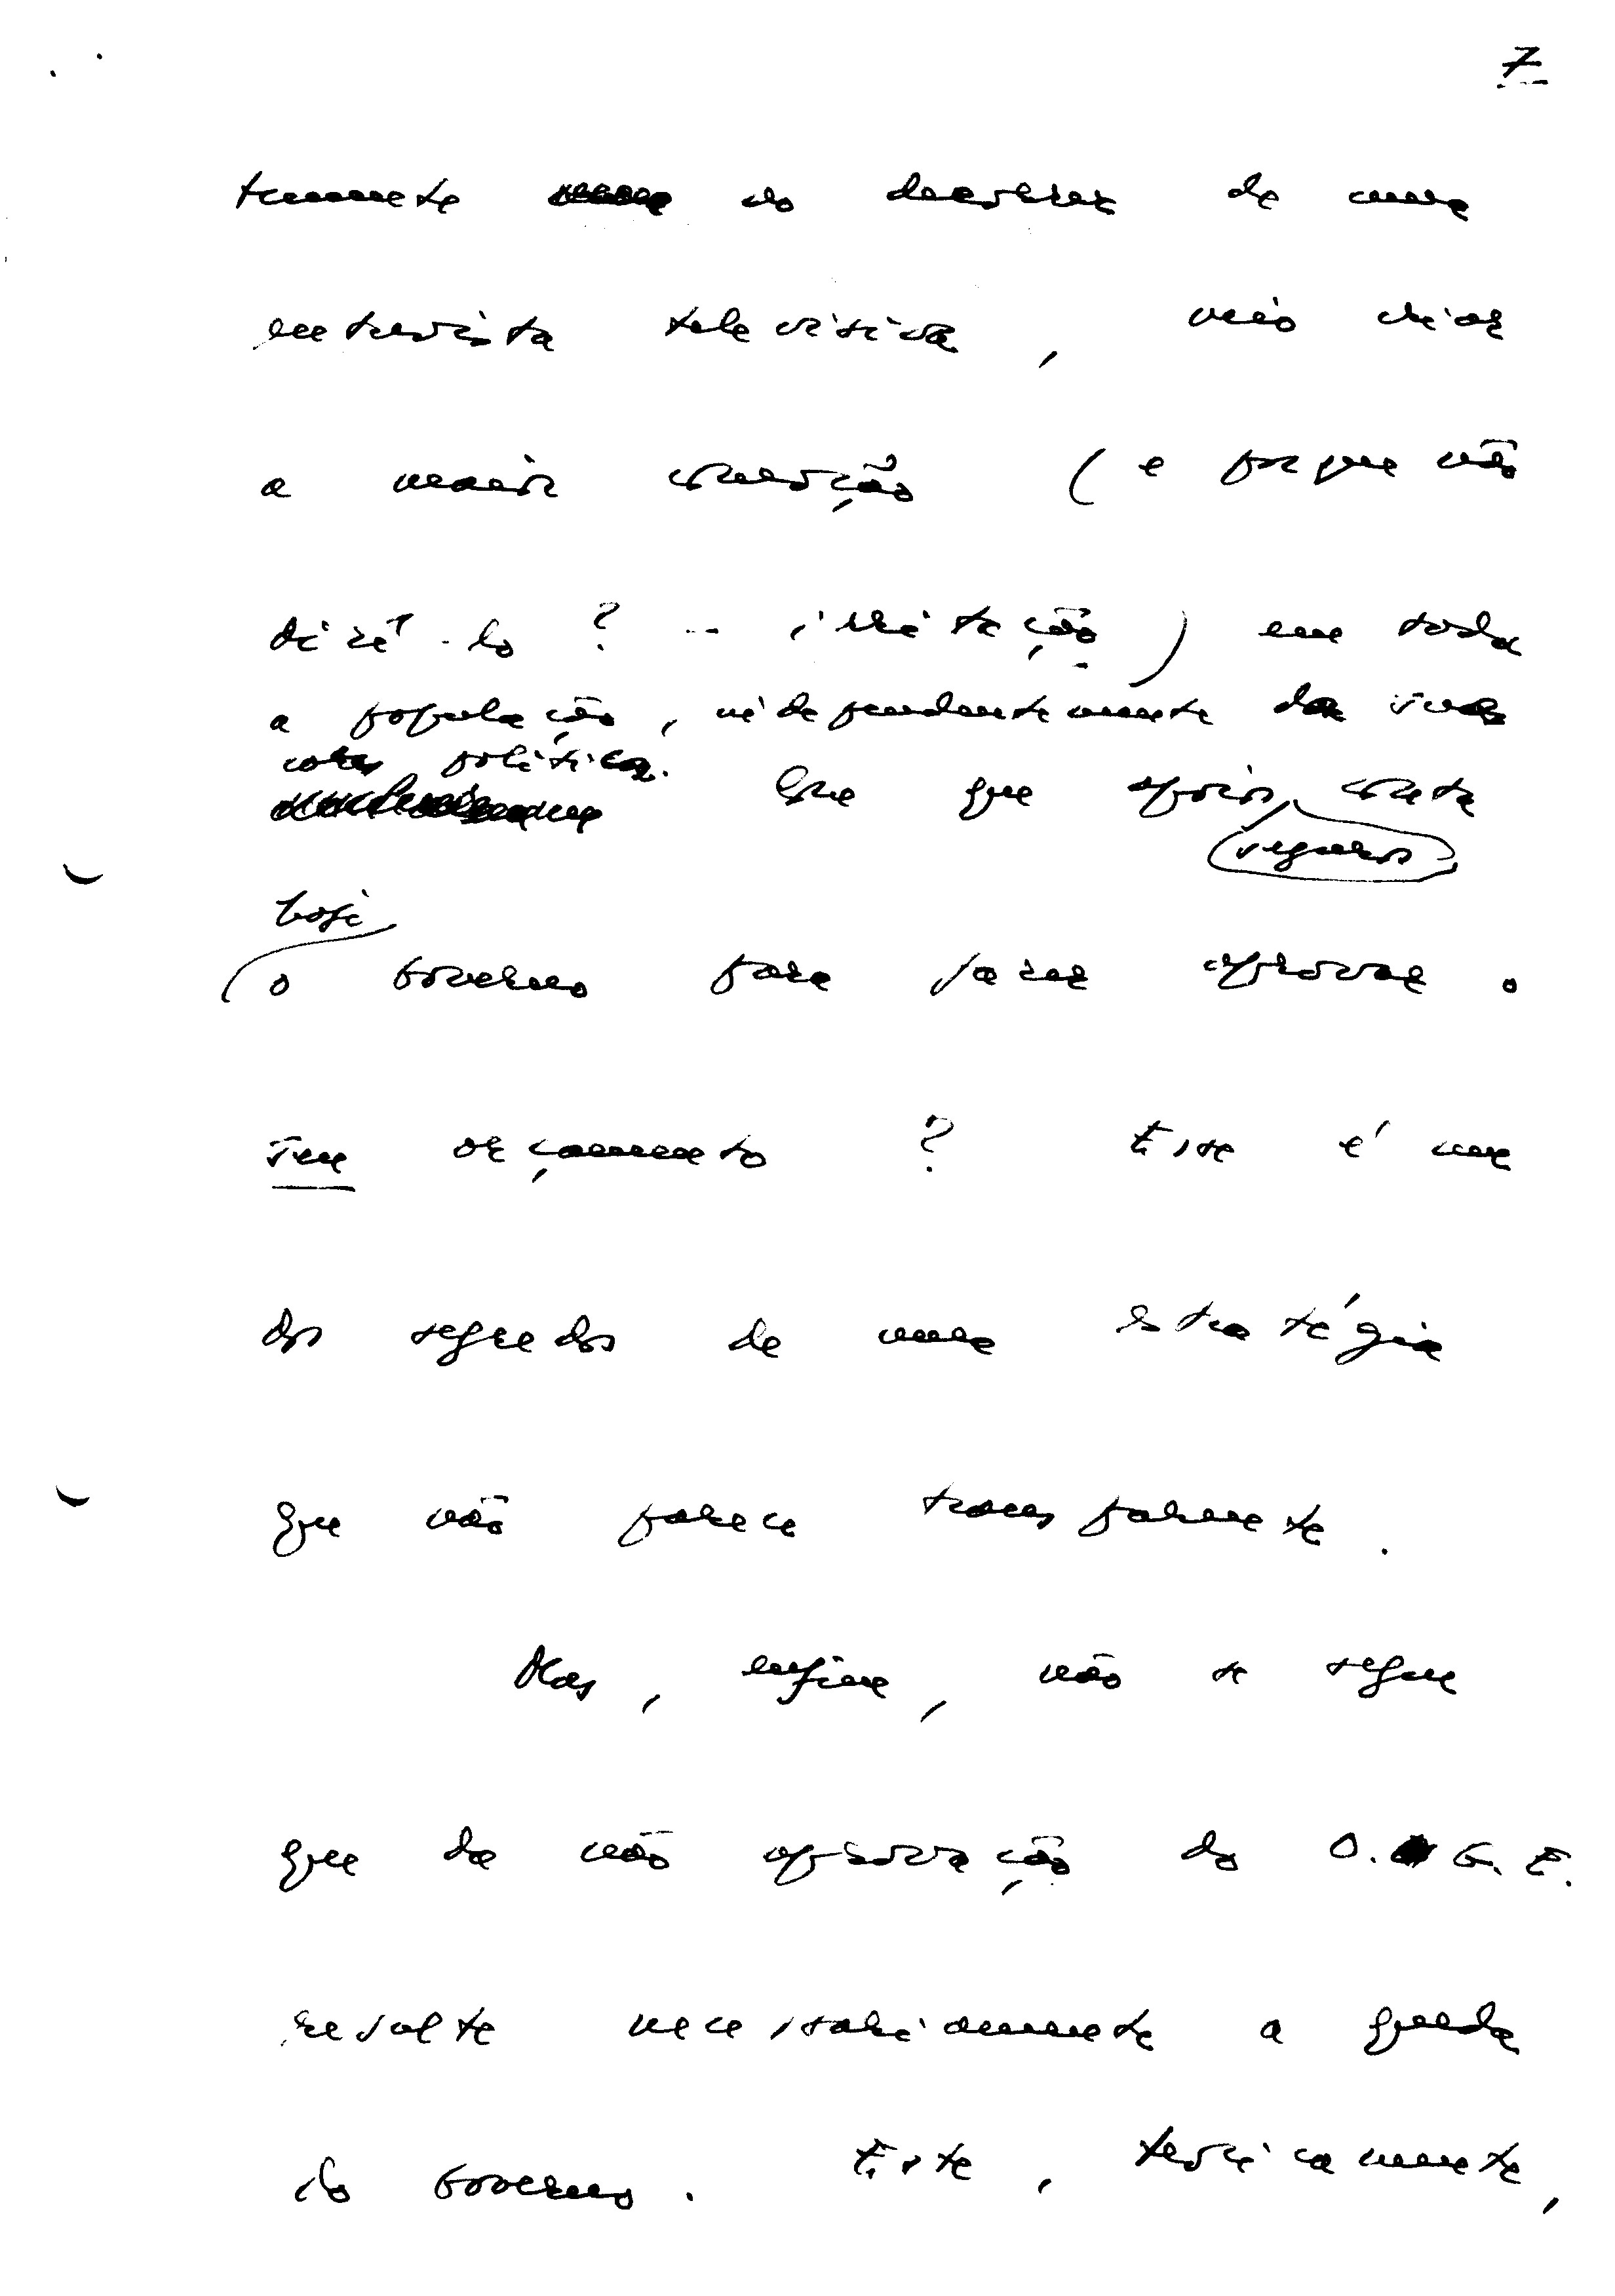 7
temente no decorrer de uma
entrevista televisiva, veio criar
a maior comoção ( e porque não
dizê-lo? -- irritação ) em toda
a população, independentemente das suas
cores políticas. Em que apoios, conta
seguros
hoje
o Governo para fazer aprovar o
seu orçamento ? Esse é um
dos segredos de uma estratégia
que não parece transparente.
Mas, enfim, não se segue
que da não aprovação do O.G.E.
resulte necessariamente a queda
do Governo. Este, teoricamente,